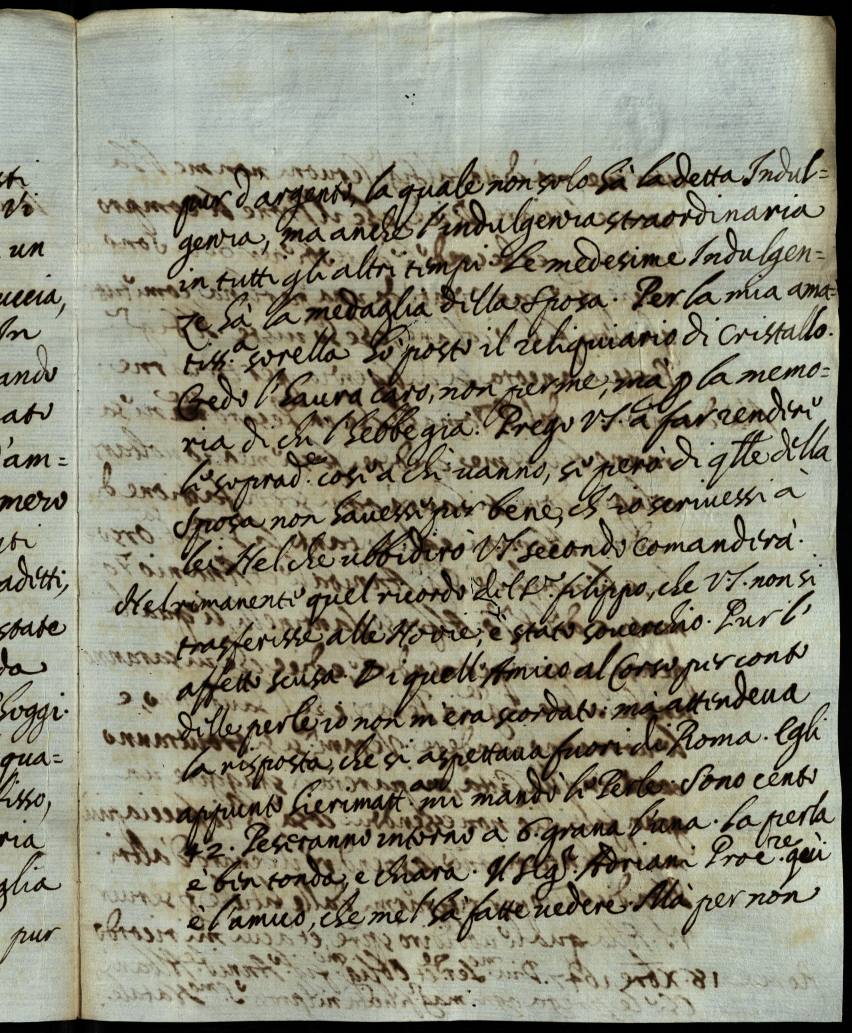 pur d'argento, la quale non solo hà la detta Indul=
genza, ma anche l'indulgenza straordinaria
in tutti gli altri tempi. Le medesime Indulgen=
ze hà la medaglia della Sposa. Per la mia ama=
tiss.a sorella hò posto il reliquiario di Cristallo.
Credo l'haurà caro, non per me, mà p la memo=
ria di chi l'hebbe già. Prego V.S. à far rendere
le soprad.e cose a chi uanno, se però di qlle della
Sposa non hauesse pur bene, ch'io scriuessi à
lei. Nel che ubbidirò V.S. secondo comanderà.
Nel rimanente quel ricordo del P. filippo, che V.S. non si
trasferisse alle Nozze, è stato souerchio. Pur l'
affetto scusa. Di quell'Amico al Corso per conto
delle perle io non m'era scordato: mà attendeua
la risposta, che si aspettaua fuori di Roma. Egli
appunto hierimatt.a mi mandò le Perle. Sono cento
42. Peseranno intorno a 6. grana l'una. La perla
è ben tonda, e chiara. Il Sig.r Adriani Proc.re qui
è l'amico, che me l'hà fatte uedere. Mà per non
sti
Vi
un
uccia,
In
ando
ato
d'am=
mero
sti
adetti,
state
da
hoggi.
qua=
fisso,
ria
glia
pur